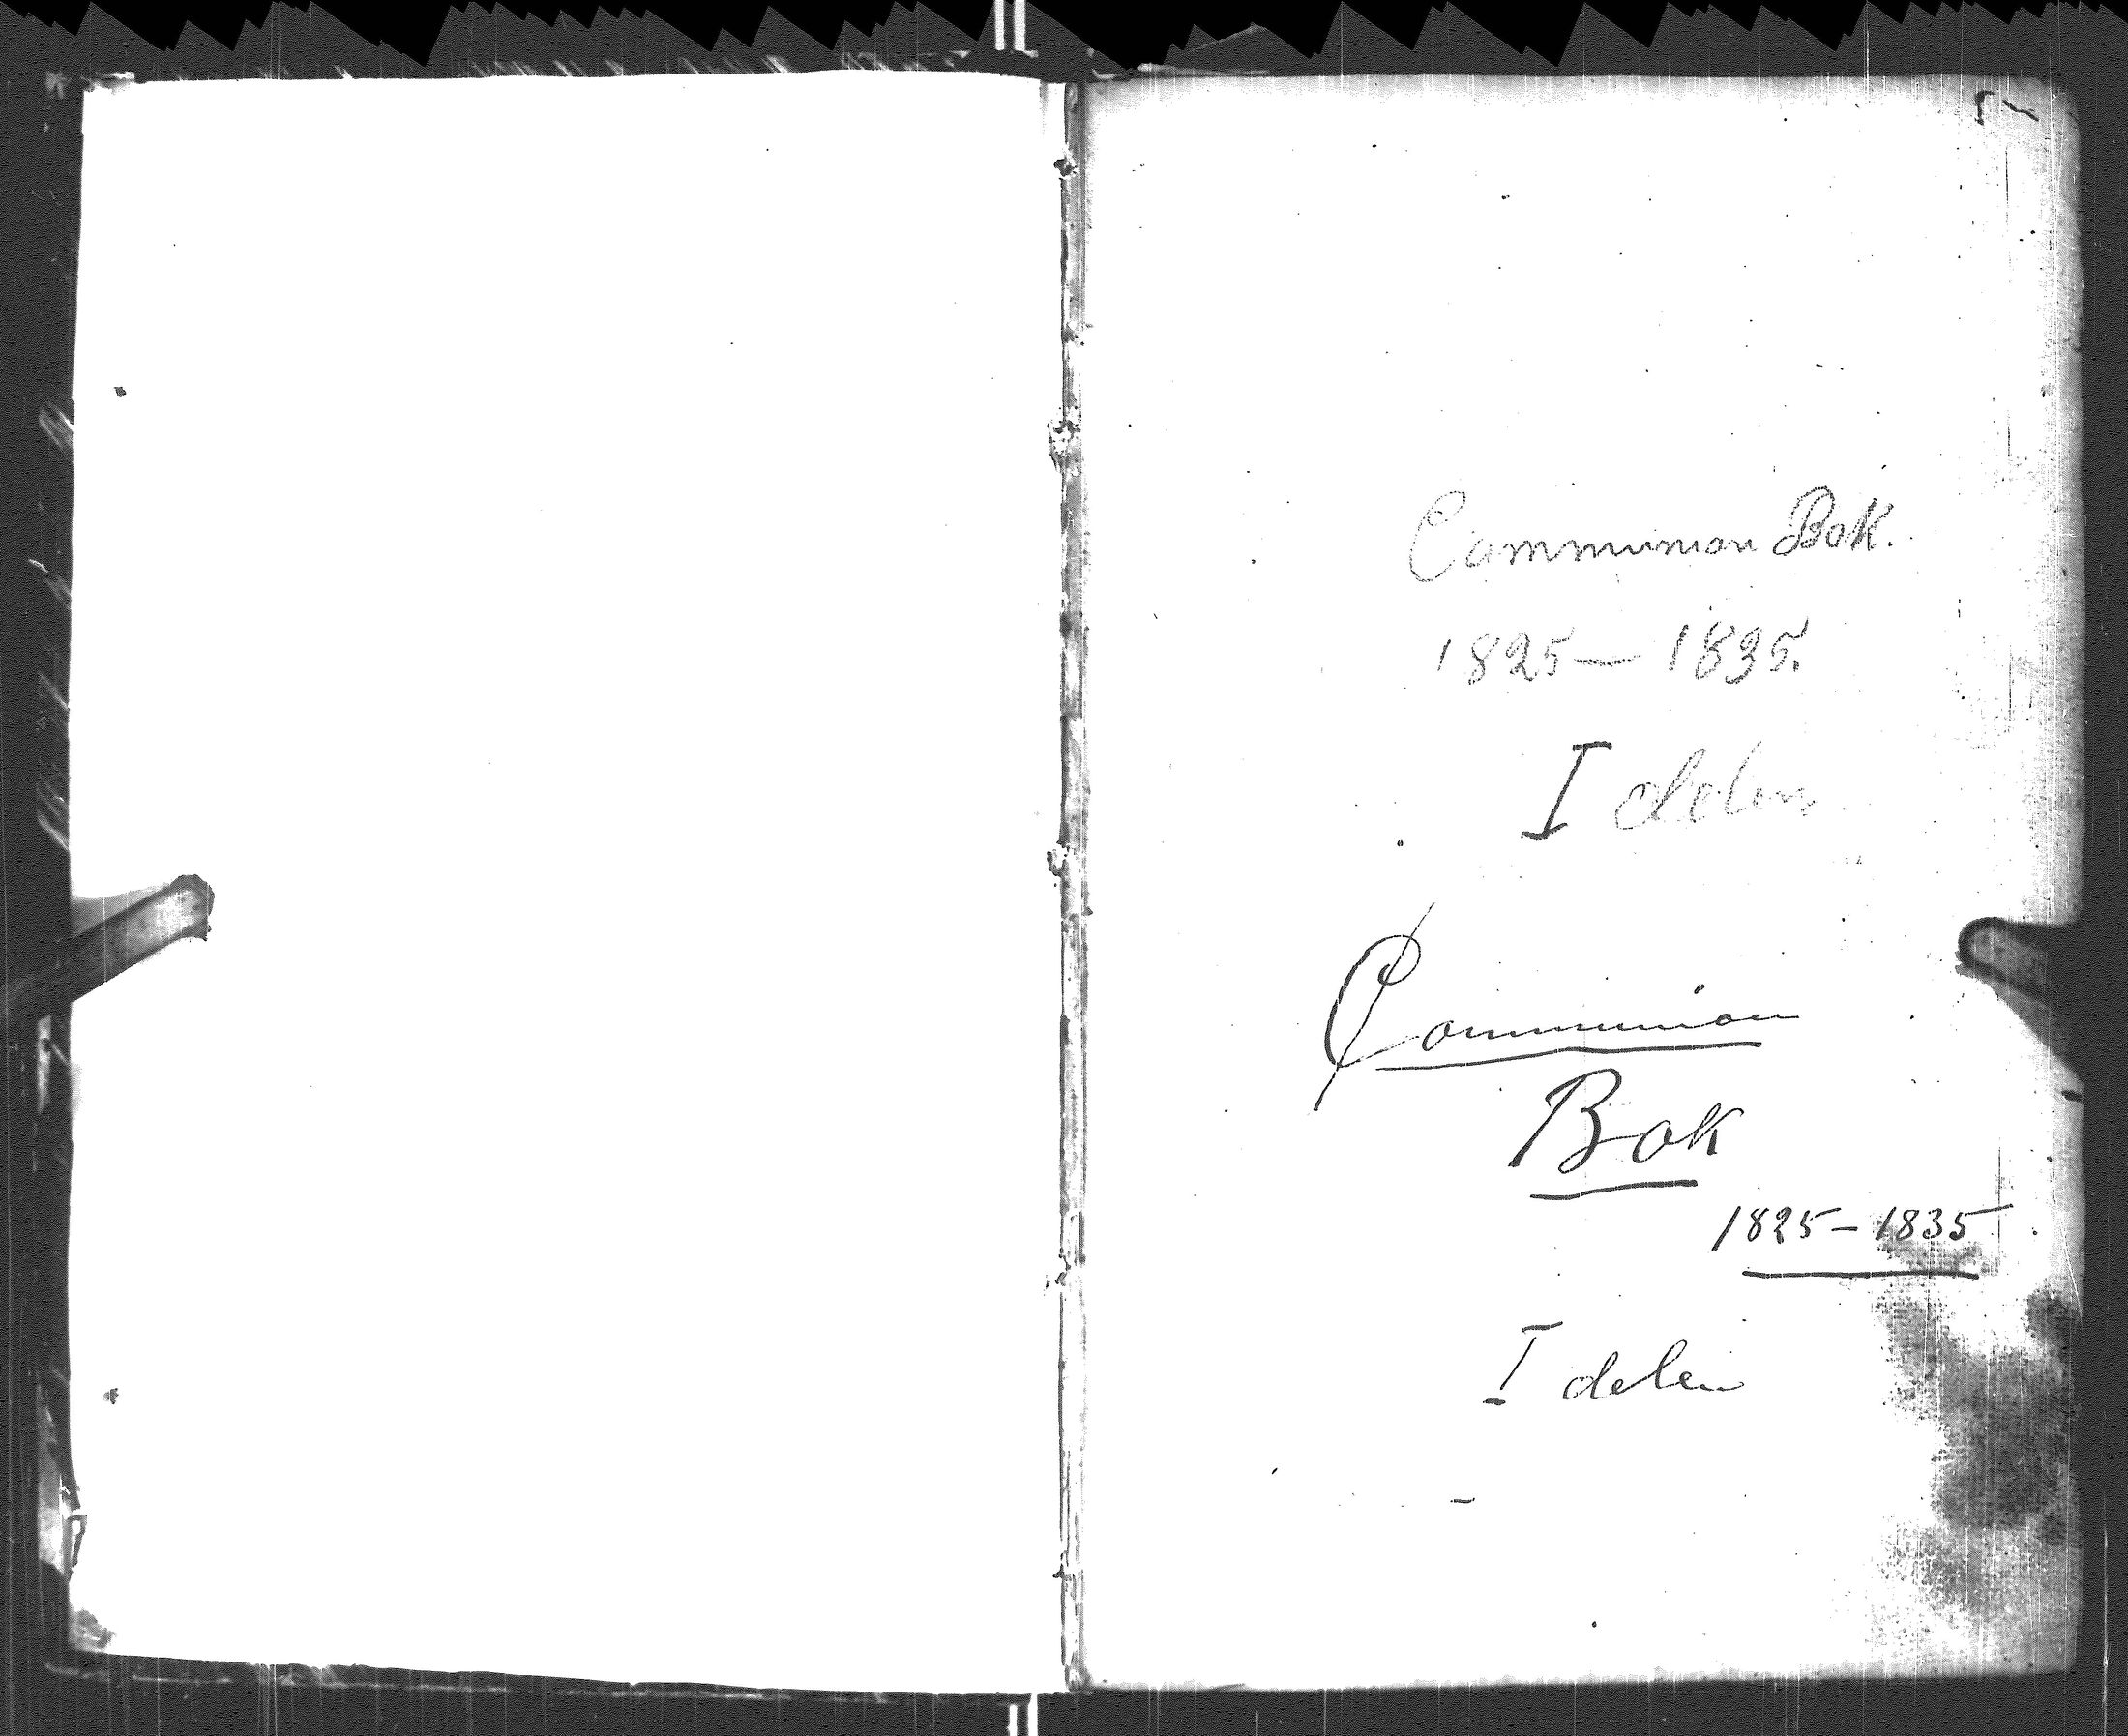 Communion Bok.
1825 — 1835.
I delen
Communion
Bok
1825 – 1835
I delen